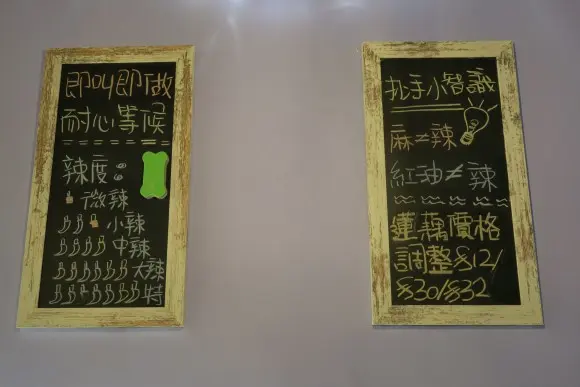 即叫即做
耐心等候
辣度：
微辣
小辣
中辣
大辣
特
扎手小智識
麻≠辣
紅油≠辣
蓮藕價格
調整$12/
$30/$32